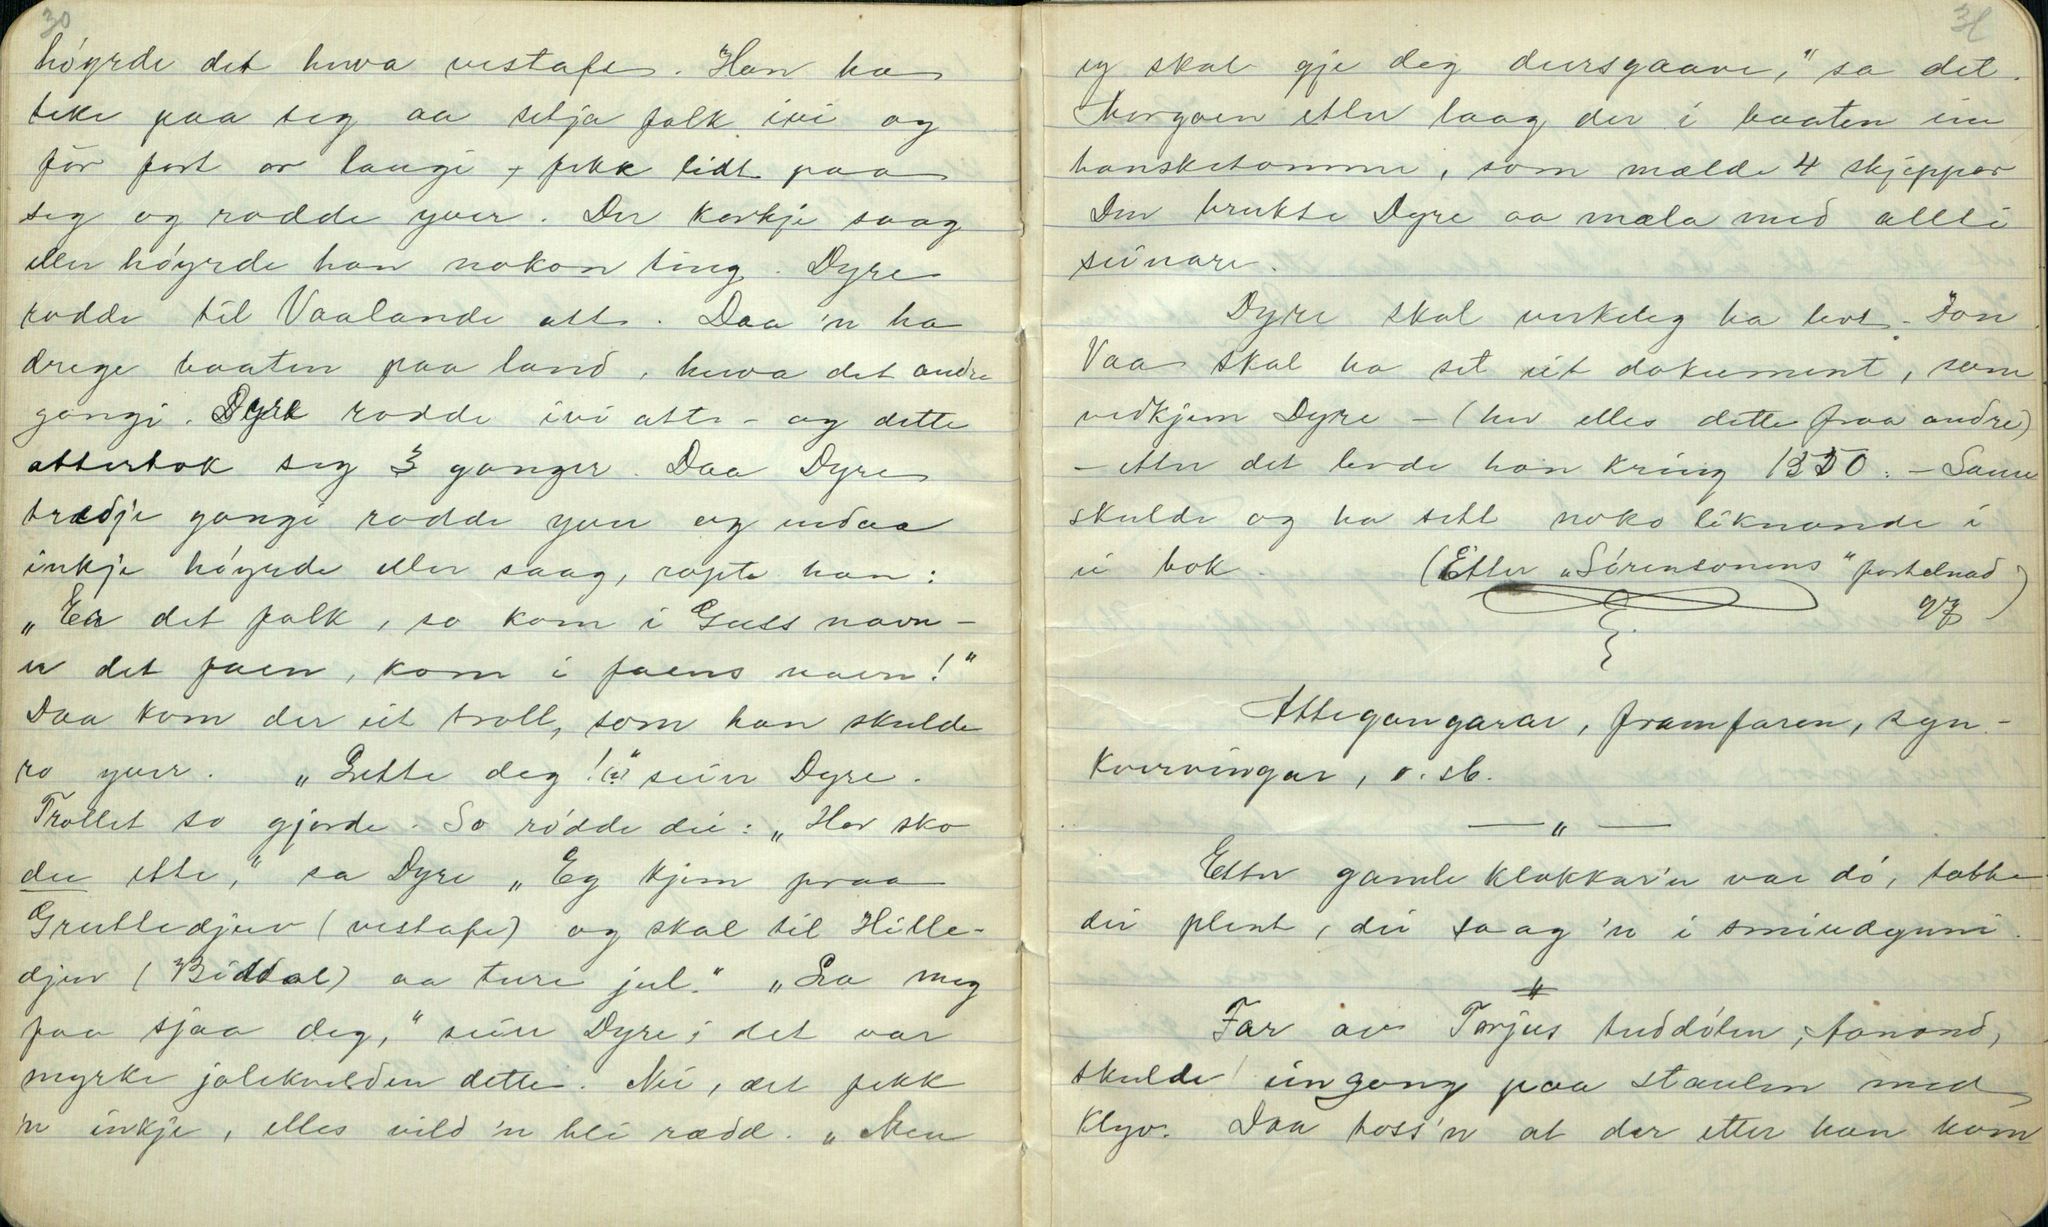 30
höyrde det huva vestafe. Han ha
teke paa seg aa setja folk ivi og
fór fort or laugi, fekk lidt paa
seg og rodde yver. Der korkje saag
eller höyrde han nokon ting. Dyre
rodde til Vaalande att. Daa 'n ha
drege baaten paa land, huva det andre
gongi. Dyre rodde ivi atte - og dette
attertok seg 3 gonger. Daa Dyre
trædje gongi rodde yver og endaa
inkje höyrde eller saag, ropte han:
„Er det folk, so kom i Guss navn -
er det faen, kom i faens navn!"
Daa kom der eit troll, som han skulde
ro yver. „Lette deg!" seier Dyre.
Trollet so gjorde. So rödde dei: „Hor sko
du ette," sa Dyre „Eg kjem fraa
Gruttedjuv (vestafe) og skal til Hille-
djuv (Bøddal) aa ture jul." „La meg
faa sjaa deg," seier Dyre; det var
myrke jolekvelden dette. Nei, det fekk
'n inkje, elles vild 'n bli rædd. „Men
31
eg skal gje deg deersgaave," sa det.
Morgoen etter laag der i baaten ein
hansketomme, som mælde 4 skjeppor
Den brukte Dyre aa mæla med allti
seinare.
Dyre skal verkeleg ha levt. Jon
Vaa skal ha set eit dokument, som
vedkjem Dyre - (hev elles dette fraa andre)
- etter det levde han kring 1350. - Same
skulde og ha sett noko liknande i
ei bok. (Etter „Sörensonens" fortelnad
97)
Attegangarar, framfaren, syn-
kvervingar, o. sl.
— „ —
Etter gamle klokkar'n var dó, totte
dei plent, dei saag 'n i smiudynni.
„
Far av Torjus tuddölen, Aanond,
skulde eingong paa staulen med
klyv. Daa toss'n at der etter han kom